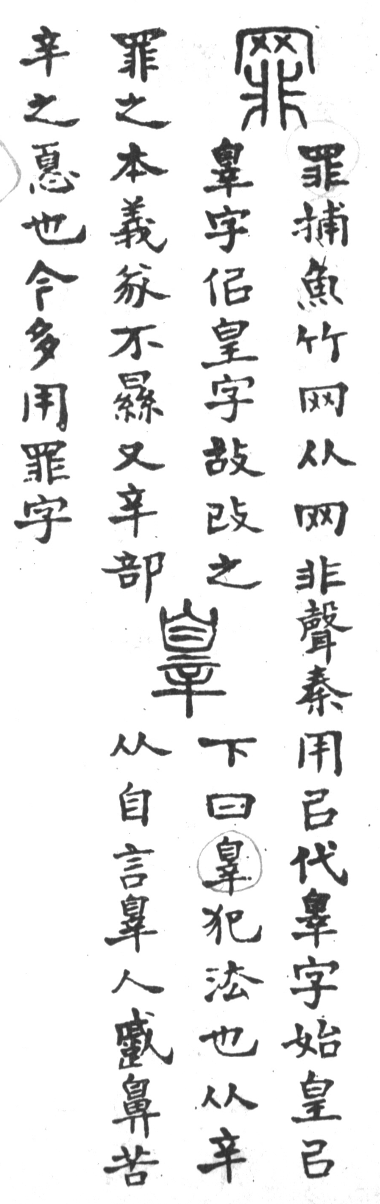 罪 罪捕魚竹网从网非聲秦用㠯代辠字始皇㠯
辠字佀皇字故改之 辠 下曰辠犯法也从辛
罪之本義㒸不㬎又辛部 从自言辠人蹙鼻苦
辛之𢝊也今多用罪字